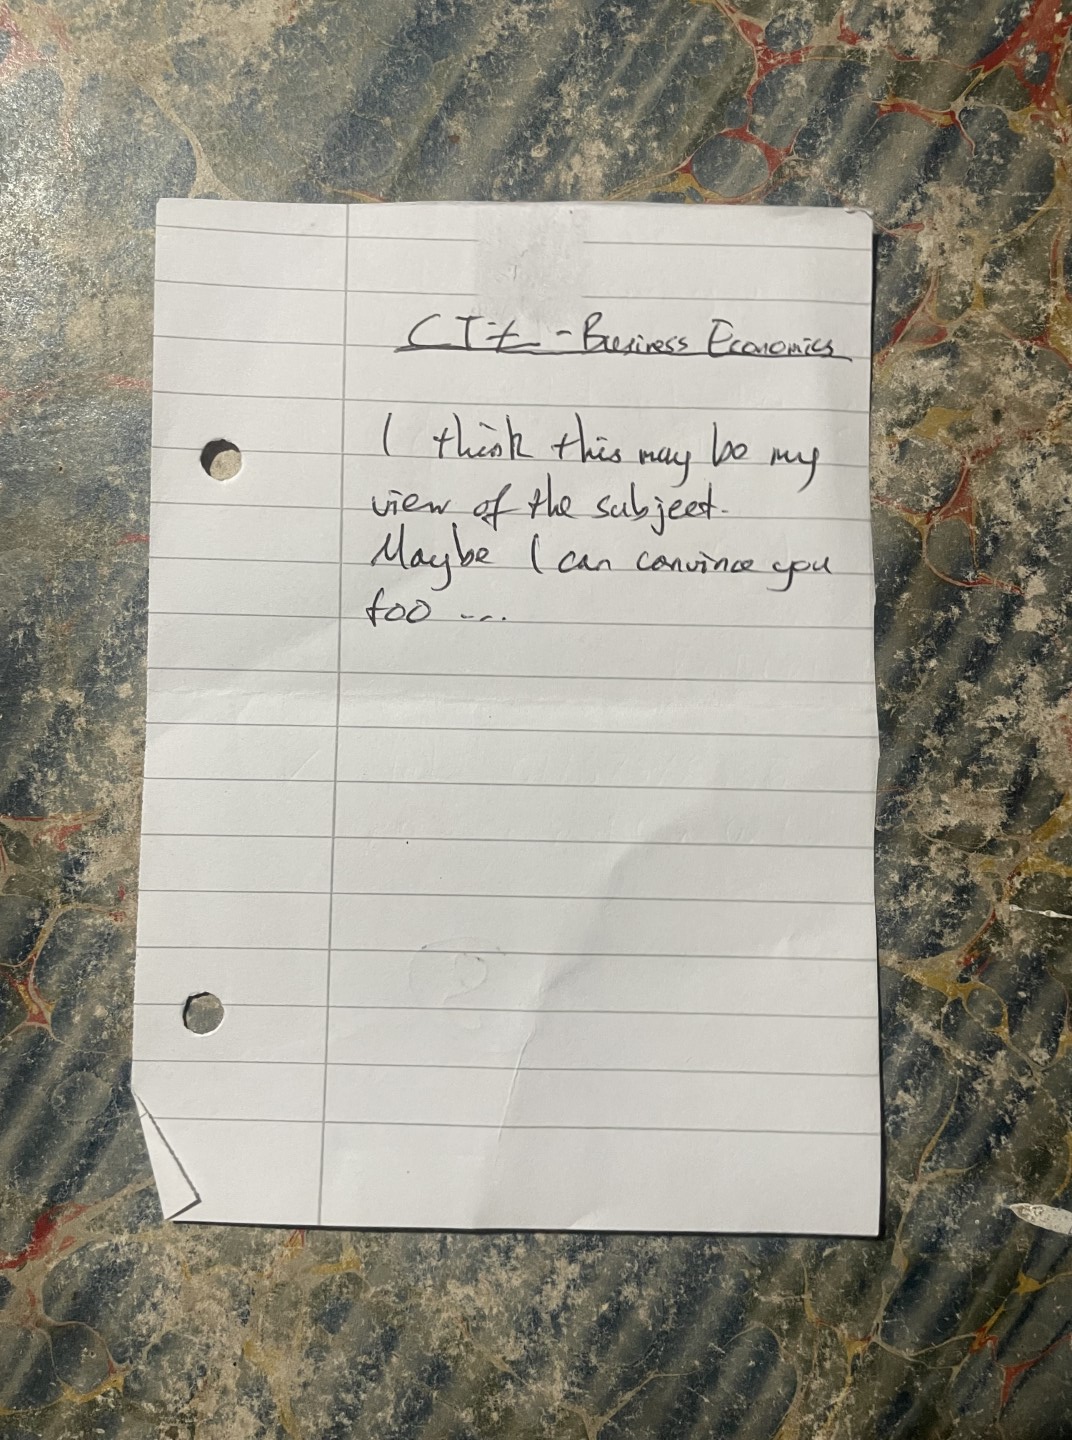 CT7 - Business Economics
I think this may be my
view of the subject.
Maybe I can convince you
too ...